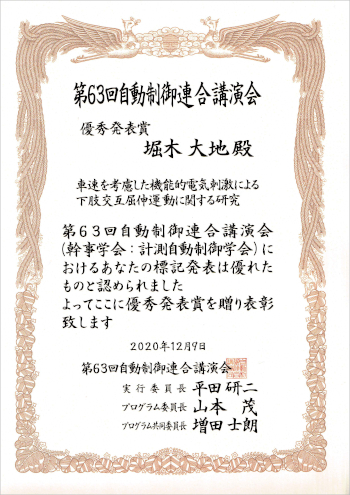 第63回自動制御連合講演会
優秀発表賞
堀木 大地 殿
車速を考慮した機能的電気刺激による
下肢交互屈伸運動に関する研究
第63回自動制御連合講演会
(幹事学会:計測自動制御学会)に
おけるあなたの標記発表は優れた
ものと認められました
よってここに優秀発表賞を贈り表彰
致します
2020年12月9日
第63回自動制御連合講演会
実行委員長 平田 研二
プログラム委員長 山本 茂
プログラム共同委員長 増田 士朗